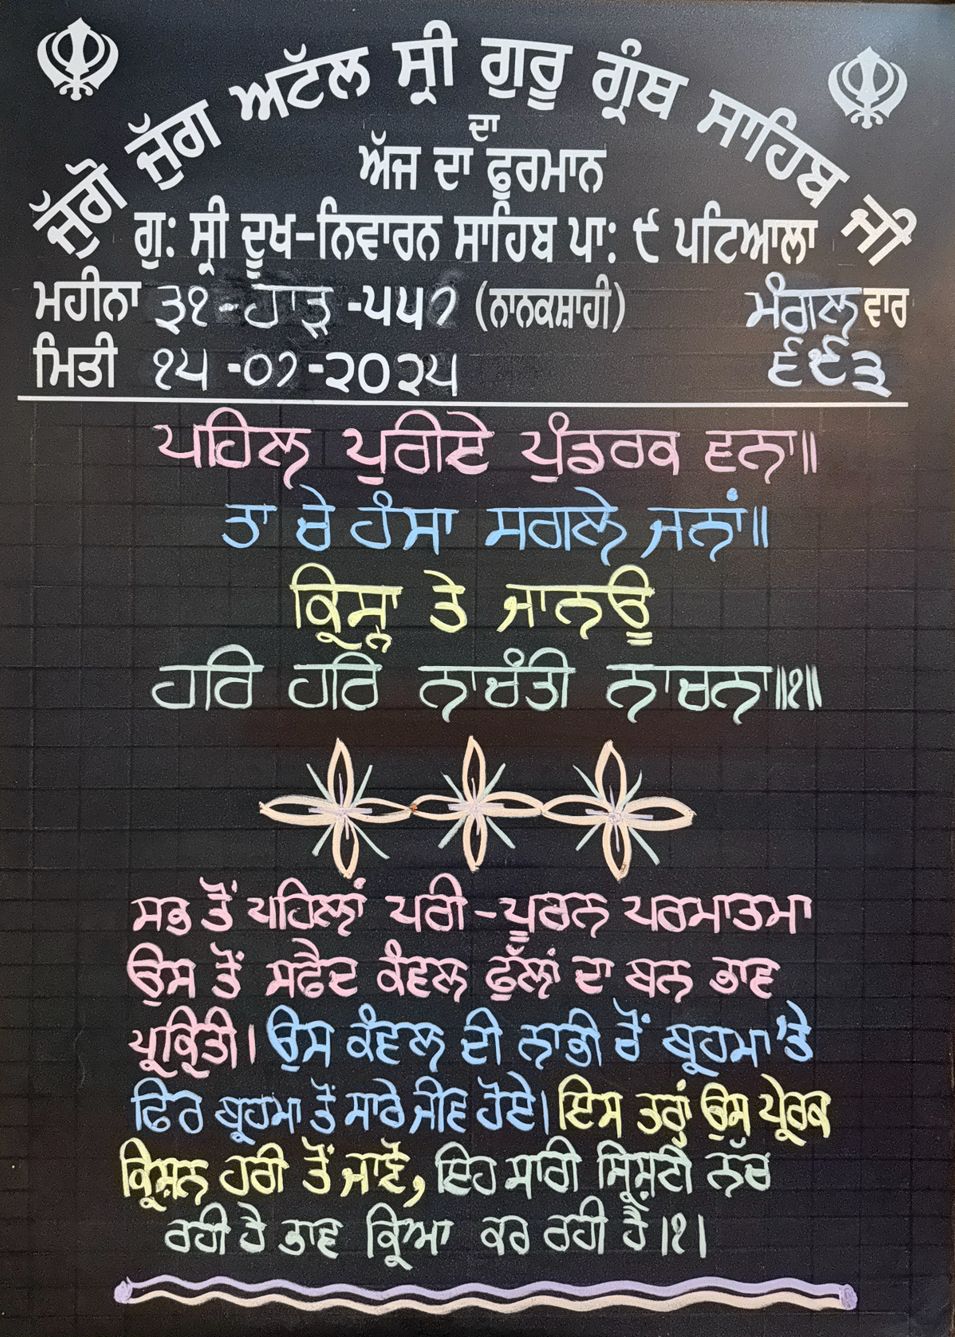 ਜੁੱਗੋ ਜੁੱਗ ਅਟੱਲ ਸ੍ਰੀ ਗੁਰੂ ਗ੍ਰੰਥ ਸਾਹਿਬ ਜੀ
ਦਾ
ਅੱਜ ਦਾ ਫੁਰਮਾਨ
ਗੁ: ਸ੍ਰੀ ਦੂਖ-ਨਿਵਾਰਨ ਸਾਹਿਬ ਪਾ: ੯ ਪਟਿਆਲਾ
ਮਹੀਨਾ ੩੧-ਹਾੜ੍ਹ-੫੫੭ (ਨਾਨਕਸ਼ਾਹੀ) ਮੰਗਲਵਾਰ
ਮਿਤੀ ੧੫-੦੭-੨੦੨੫ ੬੯੩
ਪਹਿਲ ਪੁਰੀਏ ਪੁੰਡਰਕ ਵਨਾ॥
ਤਾ ਚੇ ਹੰਸਾ ਸਗਲੇ ਜਨਾਂ॥
ਕ੍ਰਿਸ੍ਨਾ ਤੇ ਜਾਨਊ
ਹਰਿ ਹਰਿ ਨਾਚੰਤੀ ਨਾਚਨਾ॥੧॥
ਸਭ ਤੋਂ ਪਹਿਲਾਂ ਪਰੀ-ਪੂਰਨ ਪਰਮਾਤਮਾ
ਉਸ ਤੋਂ ਸਫੈਦ ਕੰਵਲ ਫੁੱਲਾਂ ਦਾ ਬਨ ਭਾਵ
ਪ੍ਰਕ੍ਰਿਤੀ। ਉਸ ਕੰਵਲ ਦੀ ਨਾਭੀ ਚੋਂ ਬ੍ਰਹਮਾ 'ਤੇ
ਫਿਰ ਬ੍ਰਹਮਾ ਤੋਂ ਸਾਰੇ ਜੀਵ ਹੋਏ। ਇਸ ਤਰ੍ਹਾਂ ਉਸ ਪ੍ਰੇਰਕ
ਕ੍ਰਿਸ਼ਨ ਹਰੀ ਤੋਂ ਜਾਣੋ, ਇਹ ਸਾਰੀ ਸ੍ਰਿਸ਼ਟੀ ਨੱਚ
ਰਹੀ ਹੈ ਭਾਵ ਕ੍ਰਿਆ ਕਰ ਰਹੀ ਹੈ।੧।